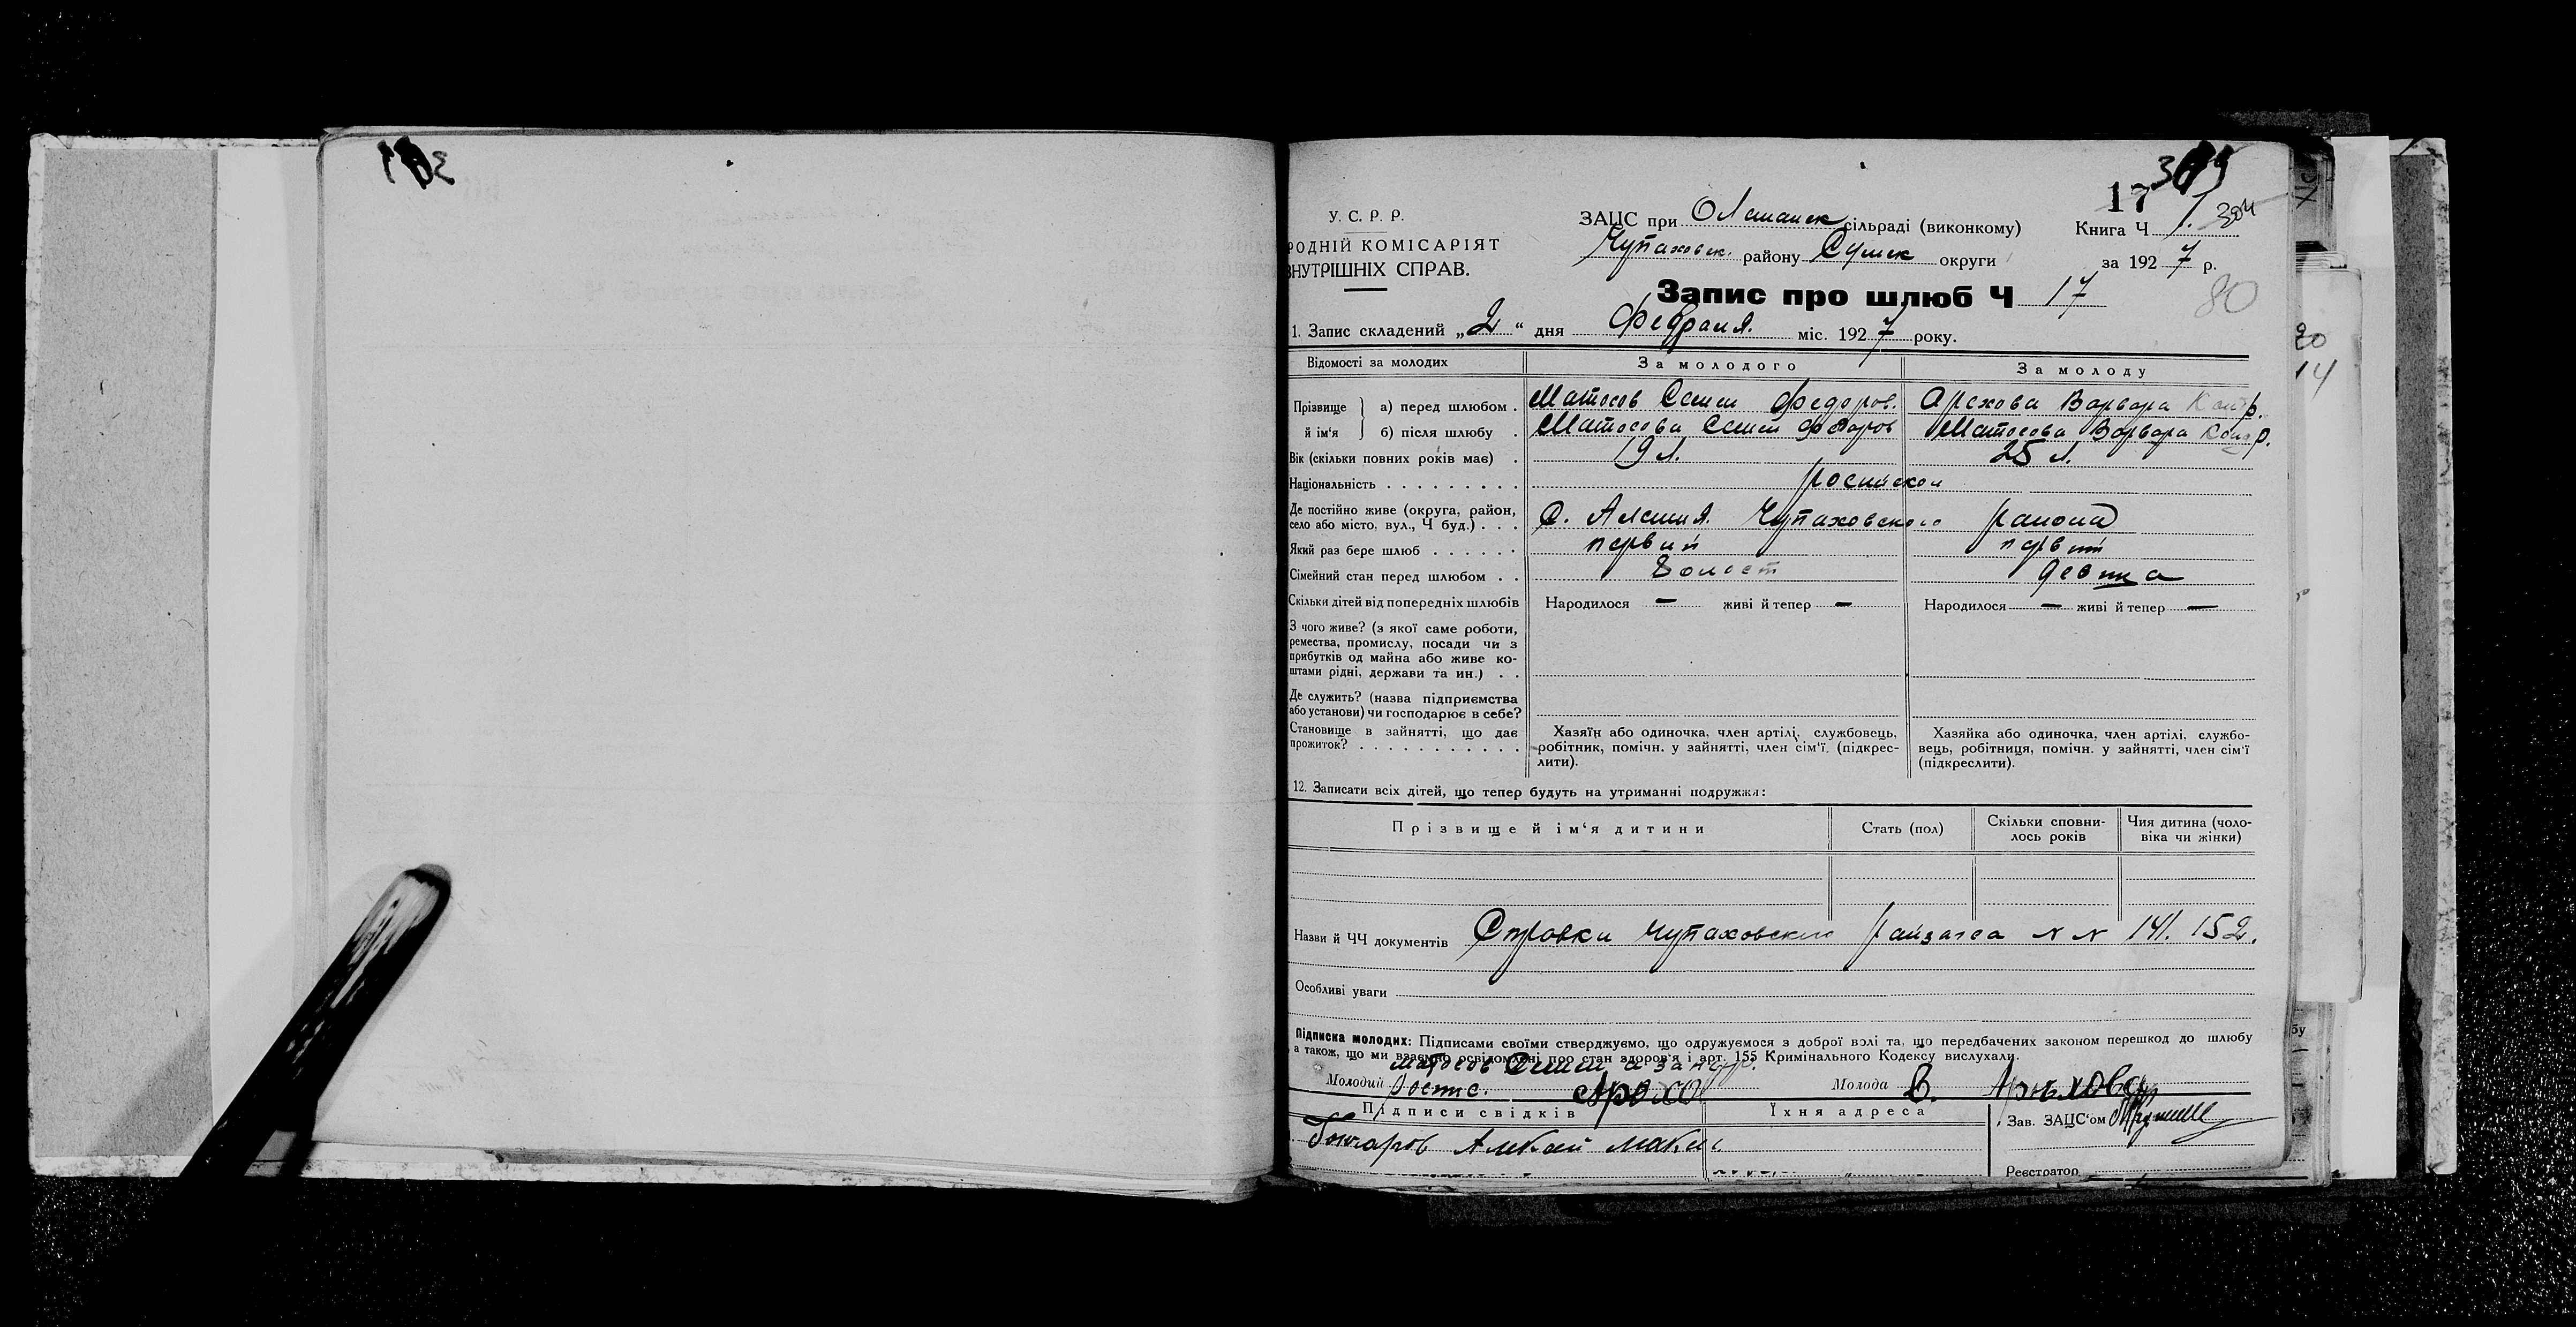 17
У. С. Р. Р.
РОДНІЙ КОМІСАРІЯТ
ВНУТРІШНІХ СПРАВ.
ЗАЦС при сільраді (виконкому)
Книга Ч 1. 304
Чупаховск. району Сумск округи
за 1927 р.
Запис про шлюб Ч 17
80
1. Запис складений „2“ дня Февраля. міс. 1927 року.
Відомості за молодих За молодого За молоду
Прізвище й ім'я а) перед шлюбом . Матосов Семен Федоров. Орехова Варвара Кондр.
б) після шлюбу . Матосова Семен Федоров Матосова Варвара Кондр.
Вік (скільки повних років має) . 19 л. 25 л.
Національність . . . . . . . . . росийской
Де постійно живе (округа, район,
село або місто, вул., Ч буд.) . . . С. Алешня Чупаховского района
Який раз бере шлюб . . . . . . первий первий
Сімейний стан перед шлюбом . . холост девица
Скільки дітей від попередніх шлюбів Народилося — живі й тепер — Народилося — живі й тепер —
З чого живе? (з якої саме роботи,
ремества, промислу, посади чи з
прибутків од майна або живе ко-
штами рідні, держави та ин.) . .
Де служить? (назва підприємства
або установи) чи господарює в себе?
Становище в зайнятті, що дає
прожиток? . . . . . . . . . . .
Хазяїн або одиночка, член артілі, службовець,
робітник, помічн. у зайнятті, член сім'ї. (підкрес-
лити).
Хазяйка або одиночка, член артілі, службо-
вець, робітниця, помічн. у зайнятті, член сім'ї
(підкреслити).
12. Записати всіх дітей, що тепер будуть на утриманні подружжя:
Прізвище й ім'я дитини Стать (пол) Скільки сповни-
лось років Чия дитина (чоло-
віка чи жінки)
Назви й ЧЧ документів Справки Чупаховского райзагса N N 141. 152.
Особливі уваги
Підписка молодих: Підписами своїми стверджуємо, що одружуємося з доброї волі та, що передбачених законом перешкод до шлюбу
а також, що ми взаємно освідомлені про стан здоров'я і арт. 155 Кримінального Кодексу вислухали.
Матосов Семен а за
Молодий росписе. Молода В.
Підписи свідків Їхня адреса Зав. ЗАЦС'ом
Гончаров Алексей
Реєстратор